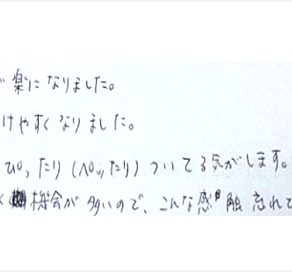 楽になりました。
けやすくなりました。
ぴったり(ペッたり)ついてる気がします。
く 機会が多いので、こんな感触忘れて